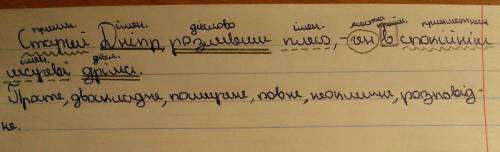 прикм. імен. дієслово імен. частка прийм. прикметник
Старий Дніпр розливши плесо, - ген в спокійнім
імен. дієсл.
дрімсі.
Просте, двоскладне, поширене, повне, неокличне, розповід-
не.